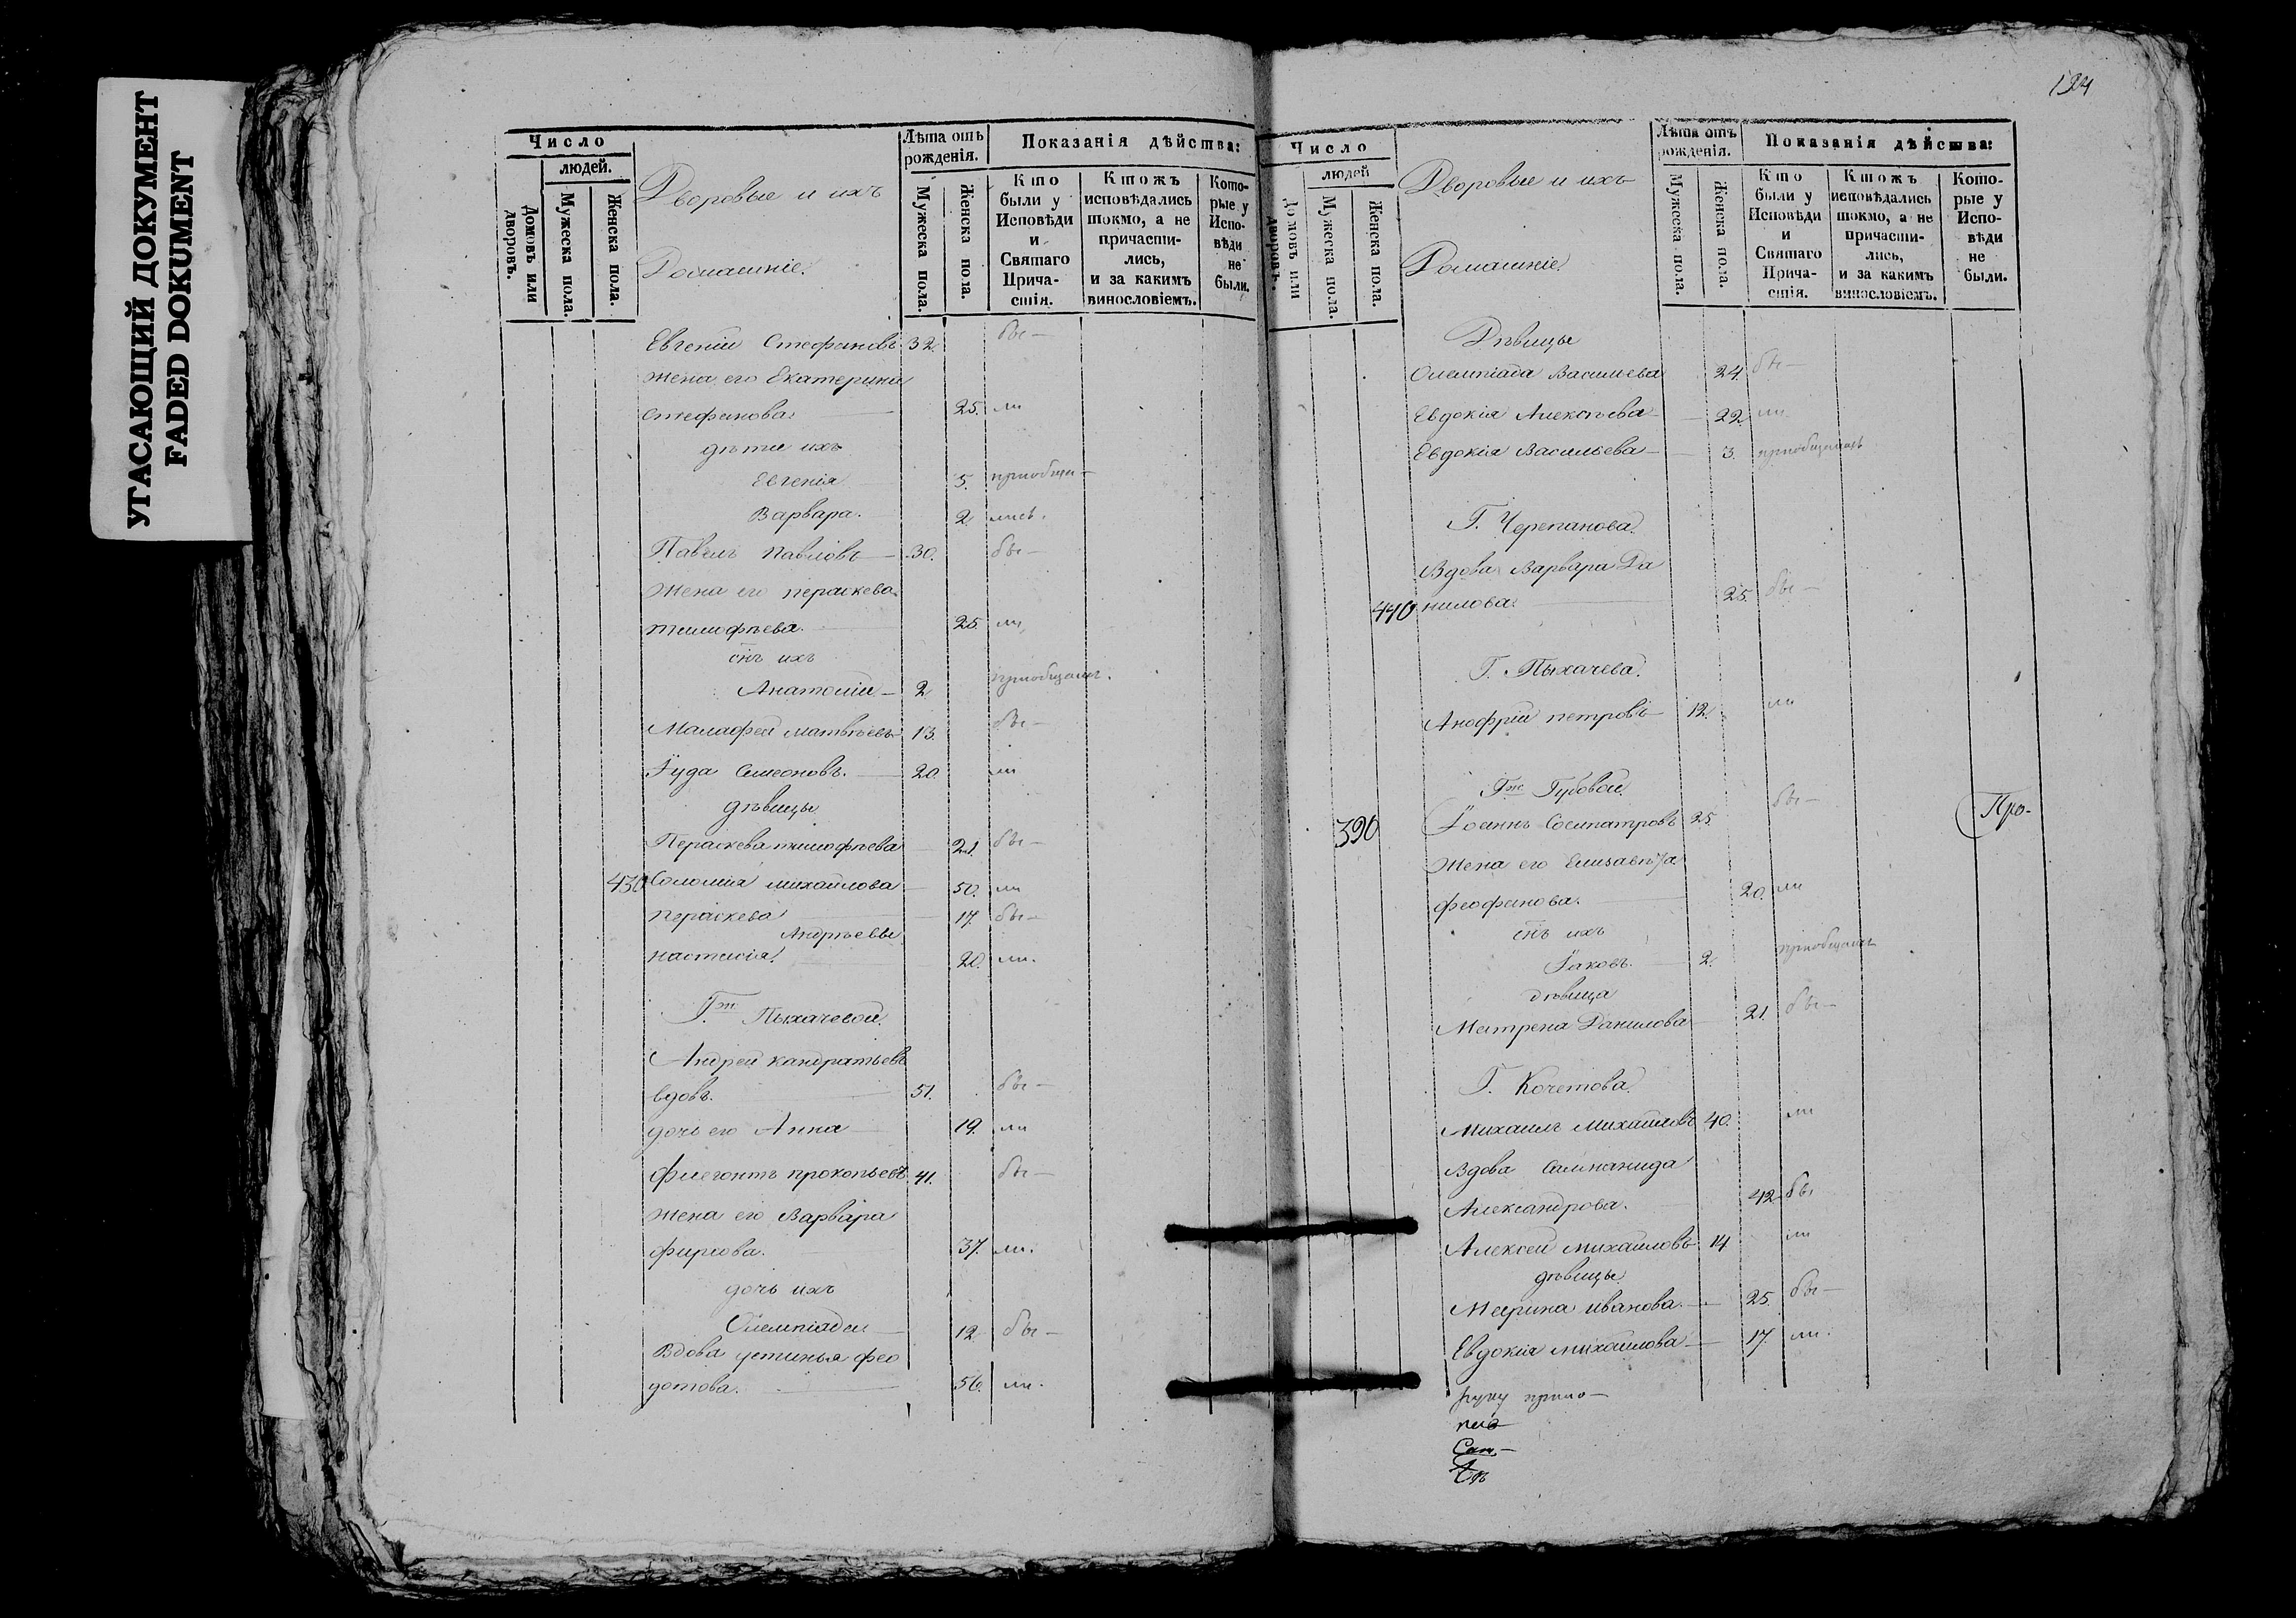 УГАСАЮЩИЙ ДОКУМЕНТ
FADED DOKUMENT
Число
людей.
Домовъ или дворовъ.
Мужеска пола.
Женска пола.
Дворовые и ихъ
Домашніе.
Лѣта отъ рожденія.
Мужеска пола.
Женска пола.
Показанія дѣйства:
Кто были у Исповѣди и Святаго Прича-стія.
Ктожъ исповѣдались токмо, а не причасти-лись, и за какимъ винословіемъ.
Кото-рые у Испо-вѣди не были.
Евгеній Стефановъ 32. бы-
жена его Екатерина
Стефанова. 25. ли
дѣти ихъ
Евгенія 5. приобща-
Варвара. 2. лись.
Павелъ Павловъ 30. бы-
Жена его Пераскева
Тимофѣева. 25. ли
снъ ихъ
Анатолій 2 приобщалъ.
Малафей Матвѣевъ 13. бы-
Іуда Симеоновъ. 20. ли
дѣвицы
Пераскева Тимофѣева 21. бы-
430 Соломія Михайлова 50. ли
Пераскева 17. бы-
Андрѣевы
Настасія 20. ли.
Гжи Пыхачевой.
Андрей Кандратьевъ
вдовъ. 51. бы-
дочь его Анна 19. ли
Флегонтъ Прокопьевъ 41. бы-
жена его Варвара
Фирсова. 37. ли.
дочь ихъ
Олемпіада 12 бы-
Вдова Устинья Фео
дотова. 56. ли.
134
Число
людей
Домовъ или дворовъ.
Мужеска пола.
Женска пола.
Дворовые и ихъ
Домашніе.
Лѣта отъ рожденія.
Мужеска пола.
Женска пола.
Показанія дѣйства:
Кто были у Исповѣди и Святаго Прича-стія.
Ктожъ исповѣдались токмо, а не причасти-лись, и за какимъ винословіемъ.
Кото-рые у Испо-вѣди не были.
Дѣвицы
Олемпіада Васильева 24. бы-
Евдокія Алексѣева 22. ли
Евдокія Васильева 3. приобщалась
Г. Черепанова.
Вдова Варвара Да
440 нилова. 25. бы-
Г. Пыхачева.
Анофрій Петровъ 12. ли
Гжи Губовой.
390 Іоаннъ Сосипатровъ 25. бы- Про-
Жена его Елизавѣта
Феофанова. 20. ли
снъ ихъ
Іаковъ. 2. приобщалъ
дѣвица
Матрена Данилова 21. бы-
Г. Кочетова.
Михаилъ Михайловъ 40. ли
Вдова
Александрова. 42 бы
Алексей Михайловъ 14 ли
дѣвицы
Марина Иванова. 25. бы-
Евдокія Михайлова 17. ли.
руку прило-